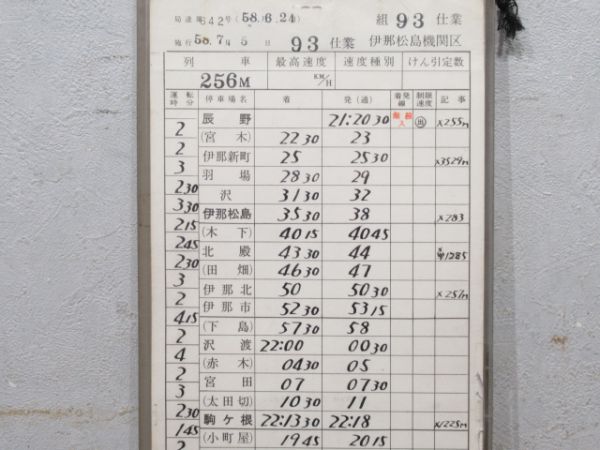 局達第642号(58.6.21
組 93 仕業
施行 58.7年5日 93仕業 伊那松島機関区
列車 最高速度 速度種別 けん引定数
256M KM/H
運転時分 停車場名 着 発(通) 着発線 制限速度 記事
辰野 21:20 30 出 ×255m
2
(宮木) 22 30 23
2
伊那新町 25 25 30 ×3529m
3
羽場 28 30 29
2 30
沢 31 30 32
3 30
伊那松島 35 30 38 ×283
2 15
(木下) 40 15 40 45
2 45
北殿 43 30 44 1285
2 30
(田畑) 46 30 47
3
伊那北 50 50 30 ×257m
2
伊那市 52 30 53 15
4 15
(下島) 57 30 58
2
沢渡 22:00 00 30
4
(赤木) 04 30 05
2
宮田 07 07 30
3
(太田切) 10 30 11
2 30
駒ケ根 22:13 30 22:18 ×1225m
1 45
(小町屋) 19 45 20 15
2